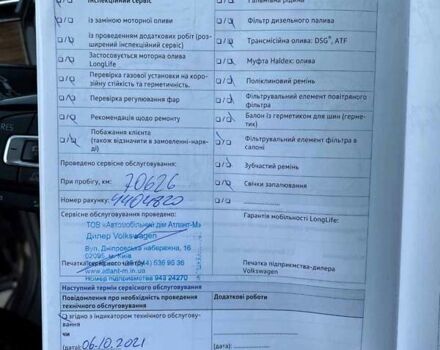 Інспекційний сервіс
Гальмівна рідина
із заміною моторної оливи
Фільтр дизельного палива
Із проведенням додаткових робіт (роз-
ширений інспекційний сервіс)
Трансмісійна олива: DSG®, ATF
Застосовується моторна олива
LongLife
Муфта Haldex: олива
Перевірка газової установки на коро-
зійну стійкість та герметичність.
Поліклиновий ремінь
Перевірка регулювання фар
Фільтрувальний елемент повітряного
фільтра
Рекомендація щодо ремонту
Балон із герметиком для шин (герме-
тик)
Побажання клієнта
(також відзначити в замовленні-наря-
ді)
Фільтрувальний елемент фільтра в
салоні
Проведено сервісне обслуговування:
Зубчастий ремінь
При пробігу, км: 70626
Свічки запалювання
Номер рахунку: 4404820
Сервісне обслуговування проведено:
Гарантія мобільності LongLife:
ТОВ «Автомобільний дім Атлант-М»
Дилер Volkswagen
Вул. Дніпровська набережна, 16
02095, м. Київ
Печатка
536 95 36
www.atlant-m.in.ua
Номер підприємства 943 24270
Печатка підприємства-дилера
Volkswagen
Наступний термін сервісного обслуговування
Повідомлення про необхідність проведення
технічного обслуговування
Додаткові роботи
згідно з індикатором технічного обслугову-
вання
чи
(дата): 06.10.2021
(дата):
RES